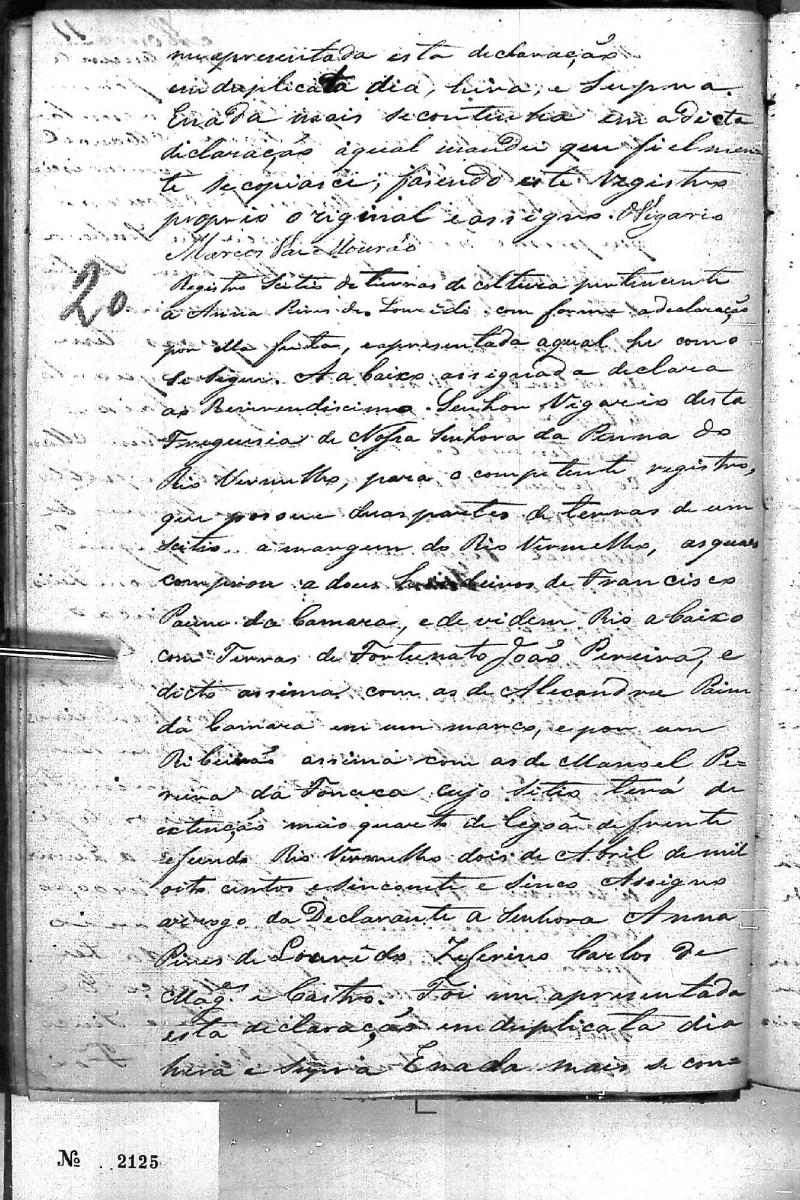 me apresentada esta declaração
em duplicata dia, hera, e Supra.
Enada mais secontinha em a dicta
declaração aqual mandei que fielmen
te se copiasse; fasendo este Registro
proprio original e assigno. OVigario
Marcos Vaz Mourão
20
Registro Sitio de terras de coltura pertencente
a Anna Pires de Lourêdo com forme adeclaração
por ella feita, eapresentada aqual he como
se segue. A abaixo assignada declara
ao Reverendissimo Senhor Vigario desta
Freguesia de Nossa Senhora da Penna do
Rio Vermelho, para o competente registro,
que possue duas partes de terras de um
scitio a margem do Rio Vermelho, asquaes
comprou a dous herdeiros de Francisco
Paim da Camara, e de videm Rio abaixo
com Terras de Fortunato João Pereira, e
dicto assima com as de Alexandre Paim
da Camara em um marco, e por um
Ribeirão assima com as de Manoel Pe=
reira da Fonceca cujo Sitio terá de
extenção meio quarto de legoa de frente
efundo Rio Vermelho dois de Abril de mil
oito centos e sincoente e sinco Assigno
arrogo da Declarante a Senhora Anna
Pires de Lourêdo Zeferino Carlos de
Mag.es e Castro. Foi me apresentada
esta declaração em duplicata dia
hera e supra Enada mais se con=
№ 2125